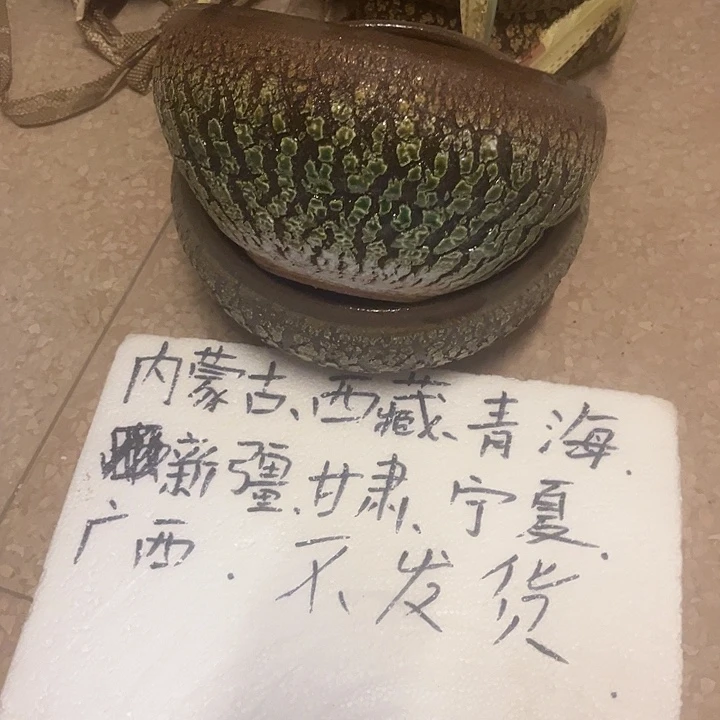 内蒙古、西藏、青海.
新疆、甘肃、宁夏.
广西. 不发货